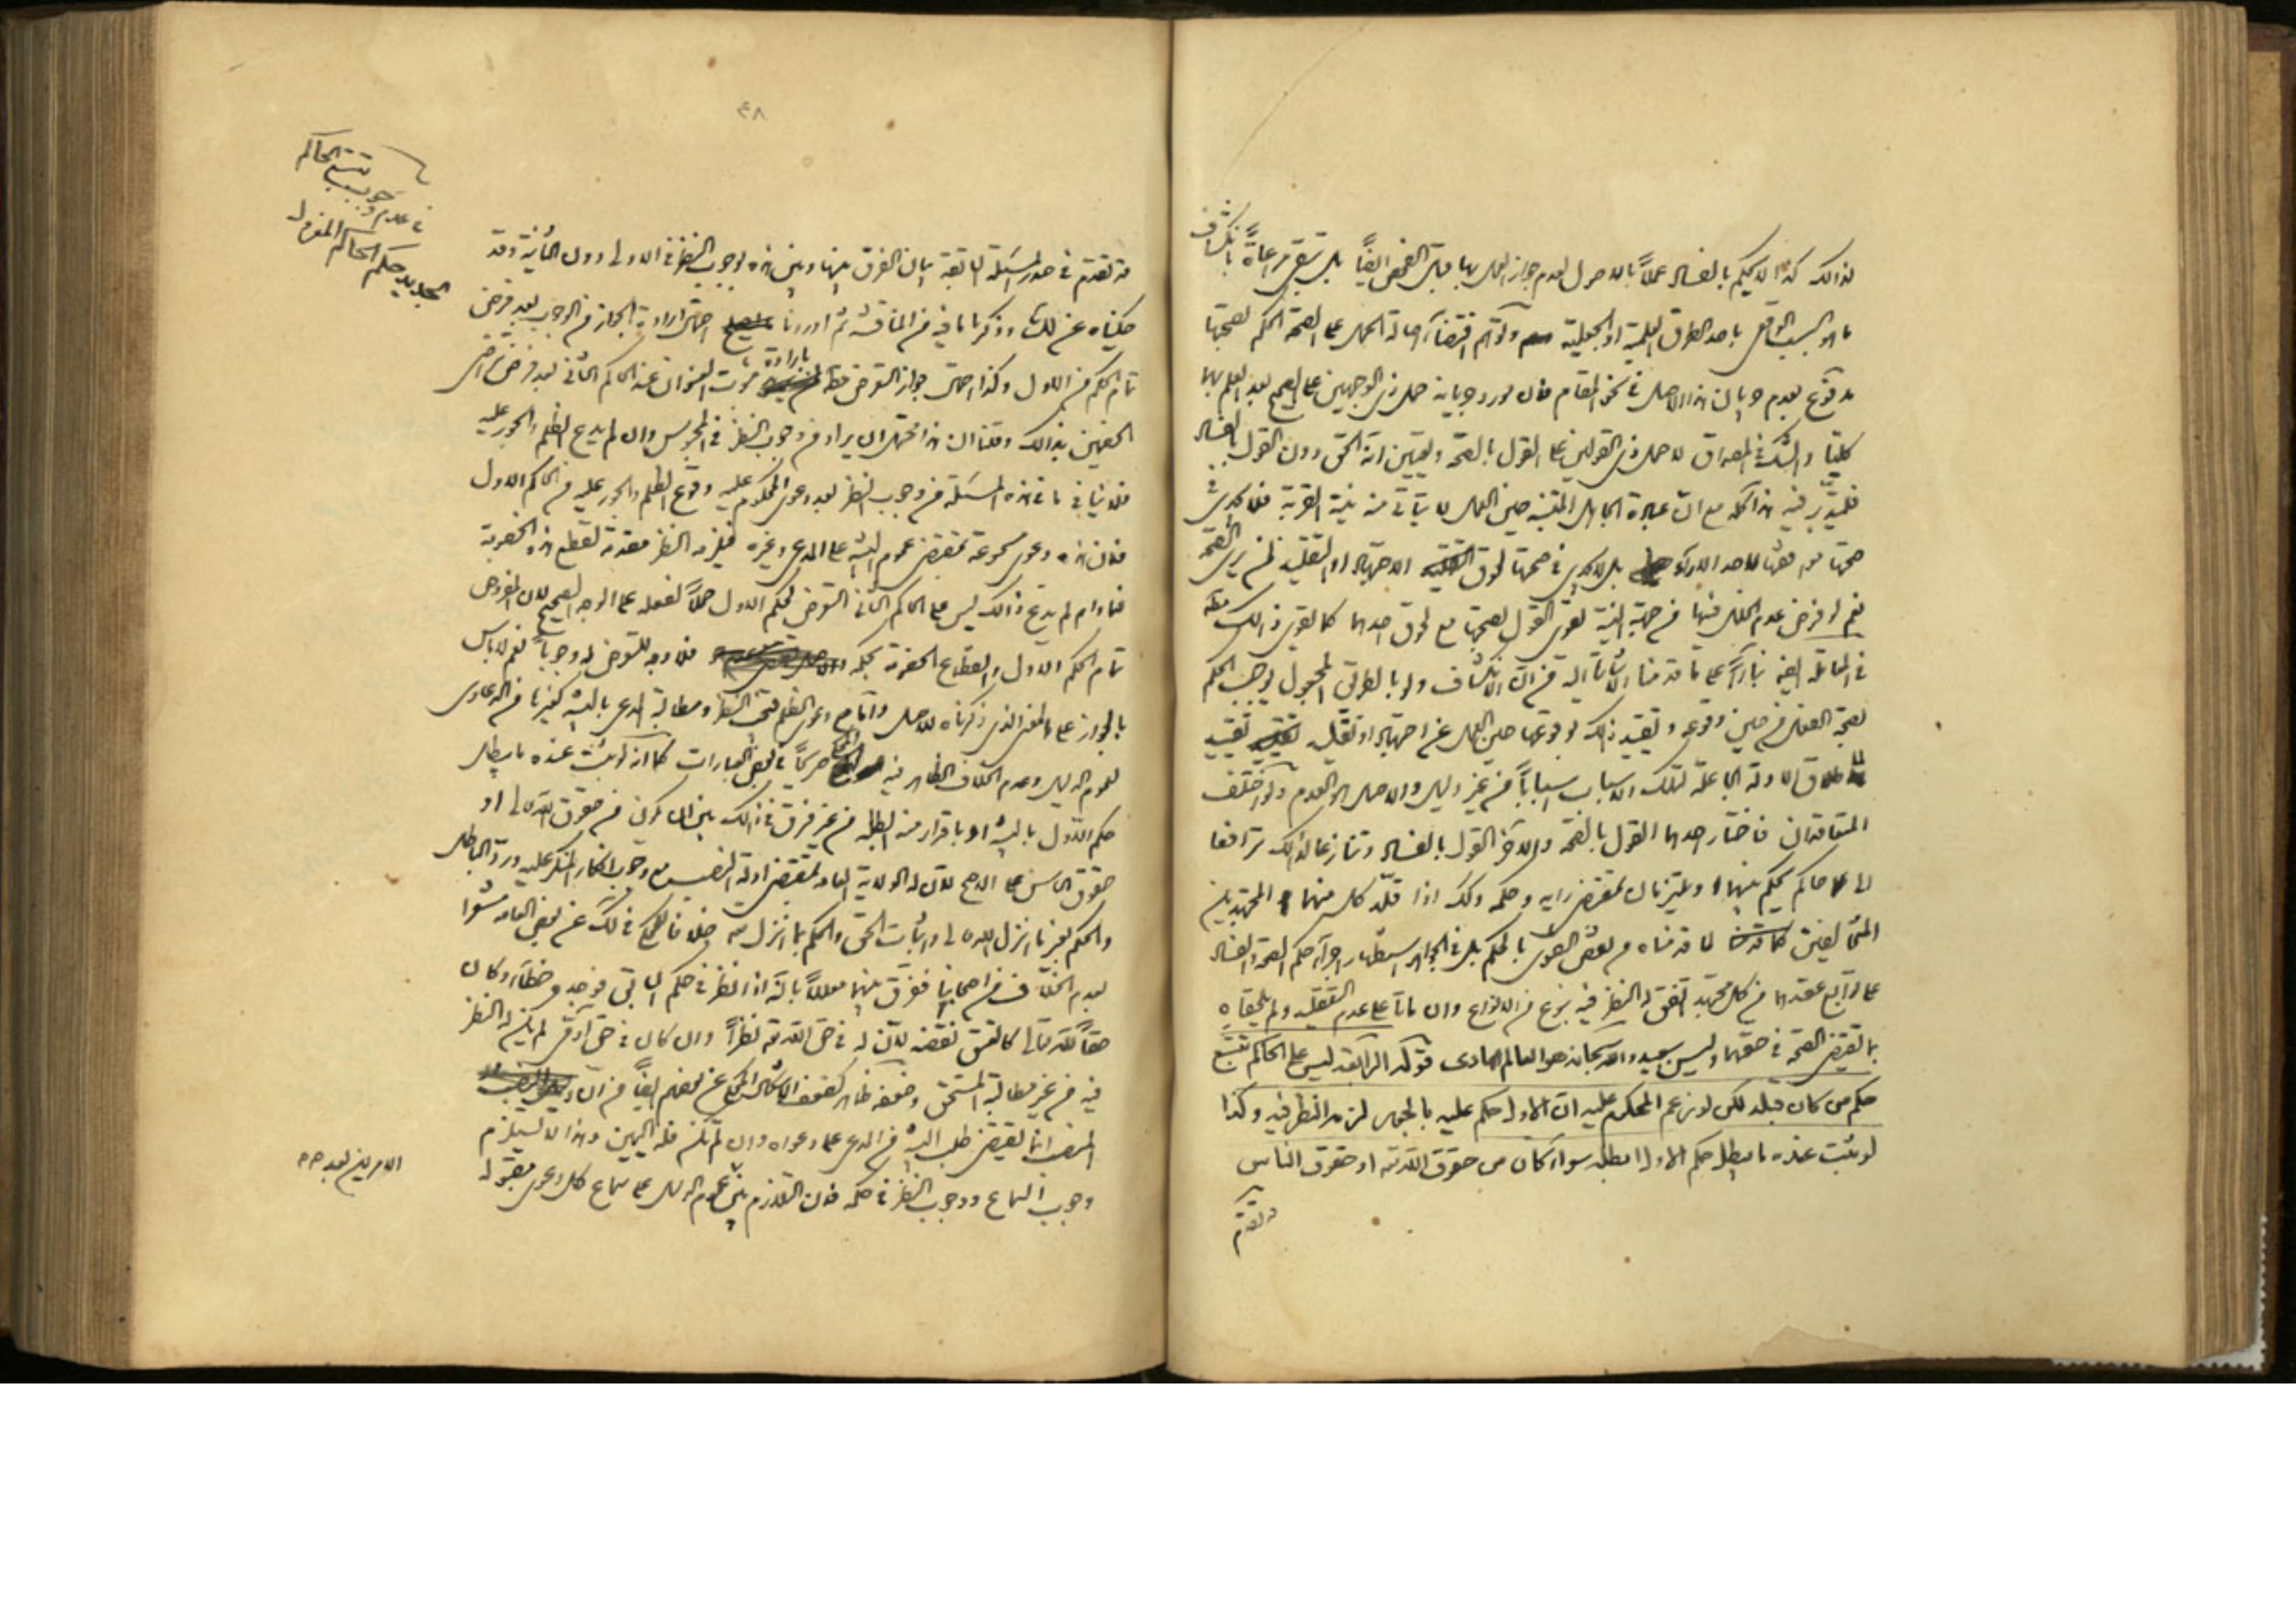 لذالك كذا لا يحكم بالفساد عملاً بالاصل لعدم جواز العمل بها قبل الفحص ايضاً بل تبقى مراعاة بانكشاف
ما هو السبب الواقعى باحد الطرق العلمية او الجعلية وتوهم اقتضاء اصالة الحمل على الصحة الحكم بصحتها
مدفوع بعدم جريان هذا الاصل فى نحو المقام فان مورد جريانه حمل ذى الوجهين على الصحيح بعد العلم بهما
كلياً والشك فى المصداق لا حمل ذى القولين على القول بالصحة وتعيين انه الحق دون القول بالفساد
فليتدبر فيه هذا كله مع ان عبادة الجاهل الملتفت حين العمل لا يتأتى منه نية القربة فلا يجدى فى
صحتها موافقتها لاحد الآراء بل لا يجدى فى صحتها لحوق الاجتهاد او التقليد لمن يرى الصحة
نعم لو فرض عدم الخلل فيها من جهة النية يقوى القول بصحتها مع لحوق احدهما كما يقوى ذالك
فى المعاملة ايضاً بناء على ما قدمنا الاشارة اليه من ان الانكشاف ولو بالطريق المجعول يوجب الحكم
بصحة العقد من حين وقوعه وتقييد ذلك بوقوعها حين العمل عن اجتهاد او تقليد تقييد
لاطلاق الادلة الجاعلة لتلك الاسباب اسباباً من غير دليل والاصل العدم ولو اختلف
المتعاقدان فاختار احدهما القول بالصحة والآخر القول بالفساد وتنازعا لذالك ترافعا
الى حاكم يحكم بينهما ويلتزمان بمقتضى رايه وحكمه وكذا اذا قلد كل منهما المجتهدين
المتخالفين لما قدمناه من نقض الفتوى بالحكم بل فى الجواهر استظهار اجراء حكم الصحة والفساد
على توابع عقدهما من كل مجتهد اتفق له النظر فيه بنوع من الانواع وان ماتا على عدم التقليد ولم يلحقاه
بما يقتضى الصحة فى حقهما وليس ببعيد والله سبحانه هو العالم الهادى قوله ليس على الحاكم تتبع
حكم من كان قبله لكن لو زعم المحكوم عليه ان الاول حكم عليه بالجور لزمه النظر فيه وكذا
لو ثبت عنده ما يبطل حكم الاول ابطله سواء كان من حقوق الله تعالى او حقوق الناس
قد تقدم
٤٨
فى عدم وجوب تتبع الحاكم
حكم الحاكم
قد تقدم فى صدر المسئلة السابقة بيان الفرق بينها وبين هذه بوجوب النظر فى الاولى دون الثانية وقد
حكيناه عن لك وذكرنا ما فيه من المناقشة ثم اوردنا احتمال ارادة الجواز من الوجوب بعد فرض
تمام الحكم من الاول وكذا احتمال جواز التعرض بارادة ثبوت العنوان عند الحاكم الثانى بعد فرض تراضى
الخصمين بذالك وقلنا ان هذا محتمل ان يراد من وجوب النظر فى المحبوس وان لم يدع الظلم والجور عليه
فلا ينافى ما فى هذه المسئلة من وجوب النظر بعد دعوى المحكوم عليه وقوع الظلم والجور عليه من الحاكم الاول
فان هذه دعوى مسموعة بمقتضى عموم البينة على المدعى وغيره فيلزمه النظر مقدمة لقطع هذه الخصومة
فما دام لم يدع ذالك ليس على الحاكم الثانى التعرض لحكم الاول حملاً لفعله على الوجه الصحيح لان المفروض
تمام الحكم الاول وانقطاع الخصومة بحكمه فلا وجه للتعرض له وجوباً نعم لا باس
بالجواز على المعنى الذى ذكرناه للاصل واما مع دعوى الظلم فيجب النظر ومطالبة المدعى بالبينة كغيرها من الدعاوى
لعموم الدليل وعدم الخلاف الظاهر فيه المحكى صريحاً فى بعض العبارات كما انه لو ثبت عنده ما يبطل
حكم الاول بالبينة او باقرار منه ابطله من غير فرق فى ذالك بين ان يكون من حقوق الله تعالى او
حقوق الناس على الاصح لان له الولاية العامة بمقتضى ادلة النصب مع وجوب انكار المنكر عليه ورد الباطل
والحكم بغير ما انزل الله تعالى واثبات الحق والحكم بما انزل الله خلافا للمحكى فى لك عن بعض العامة مشعرا
بعدم الخلاف من اصحابنا ففرق بينهما معللاً بانه اذا نظر فى حكم السابق فوجده خطاء وكان
حقاً لله تعالى كالعتق نقضه لان له فى حق الله تعالى نظراً وان كان فى حق آدمى لم يكن له النظر
فيه من غير مطالبة المستحق وضعفه ظاهر كضعف الاشكال المحكى عن بعضهم ايضاً من ان
المنصب انما يقتضى طلب البينة من المدعى على دعواه وان لم تكن فله اليمين وهذا لا يستلزم
وجوب السماع ووجوب النظر فى حكمه فان التلازم بين عموم الدليل على سماع كل دعوى مقبولة
الامرين بعد